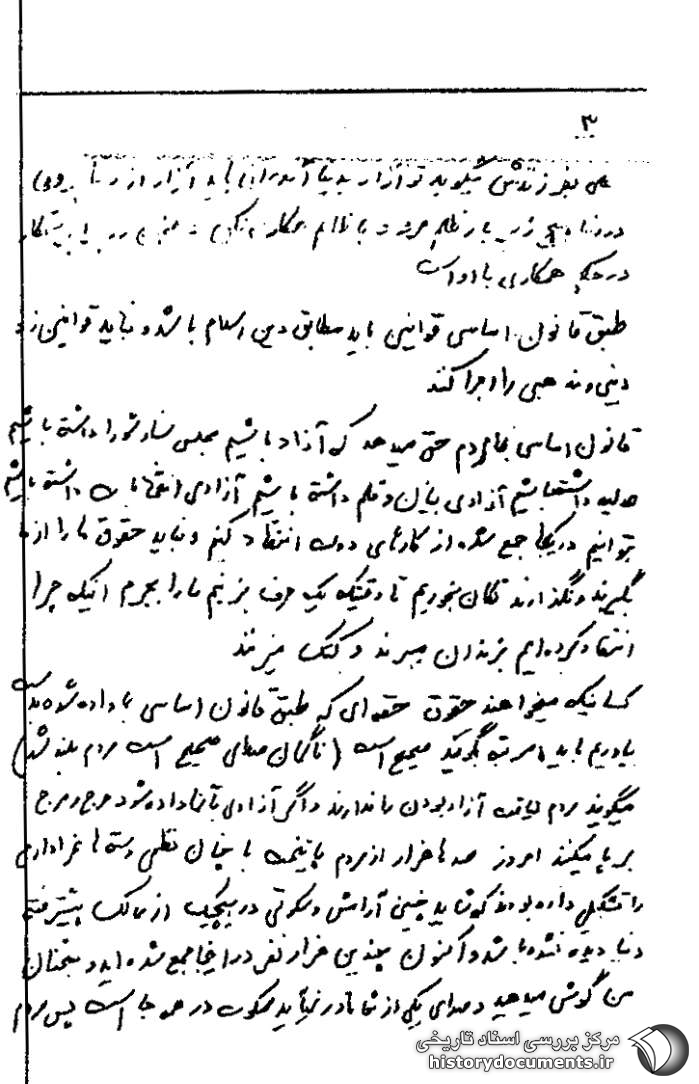 ۳
علی بفرزندش میگوید تو آزاد بدنیا آمده‌ای باید آزاد از دنیا بروی
در دنیا هیچ زیر بار ظلم مرو و با ظالم همکاری نکن
در حکم همکاری با او است
طبق قانون اساسی قوانین باید مطابق دین اسلام باشد و نباید قوانین
دینی و مذهبی را اجرا کنند
قانون اساسی بما مردم حق میدهد که آزاد باشیم مجلس شورا داشته باشیم
عدلیه داشته باشیم آزادی بیان و قلم داشته باشیم آزادی انتخابات داشته باشیم
بتوانیم در یکجا جمع شده از کارهای دولت انتقاد کنیم و نباید حقوق ما را از ما
بگیرند و نگذارند تکان بخوریم تا وقتیکه یک حرف بزنیم ما را بجرم اینکه چرا
انتقاد کرده‌ایم بزندان میبرند و کتک میزنند
کسانیکه میخواهند حقوق حقه‌ای که طبق قانون اساسی بما داده شده بدست
بیاوریم باید مرتب بگویند صحیح است (ناگهان صدای صحیح است مردم بلند شد)
میگویند مردم لیاقت آزاد بودن را ندارند و اگر آزادی بآنها داده شود هرج و مرج
بر پا میکنند امروز صدها هزار از مردم پایتخت با چنان نظمی دسته‌ها عزاداری
را تشکیل داده بودند که شاید چنین آرامش و سکوتی در هیچیک از ممالک پیشرفته
دنیا دیده نشده باشد و اکنون چندین هزار نفر در اینجا جمع شده‌اید و بسخنان
من گوش میدهید و صدای یکی از شما در نمیآید سکوت در همه جا است پس مردم
مرکز بررسی اسناد تاریخی
historydocuments.ir